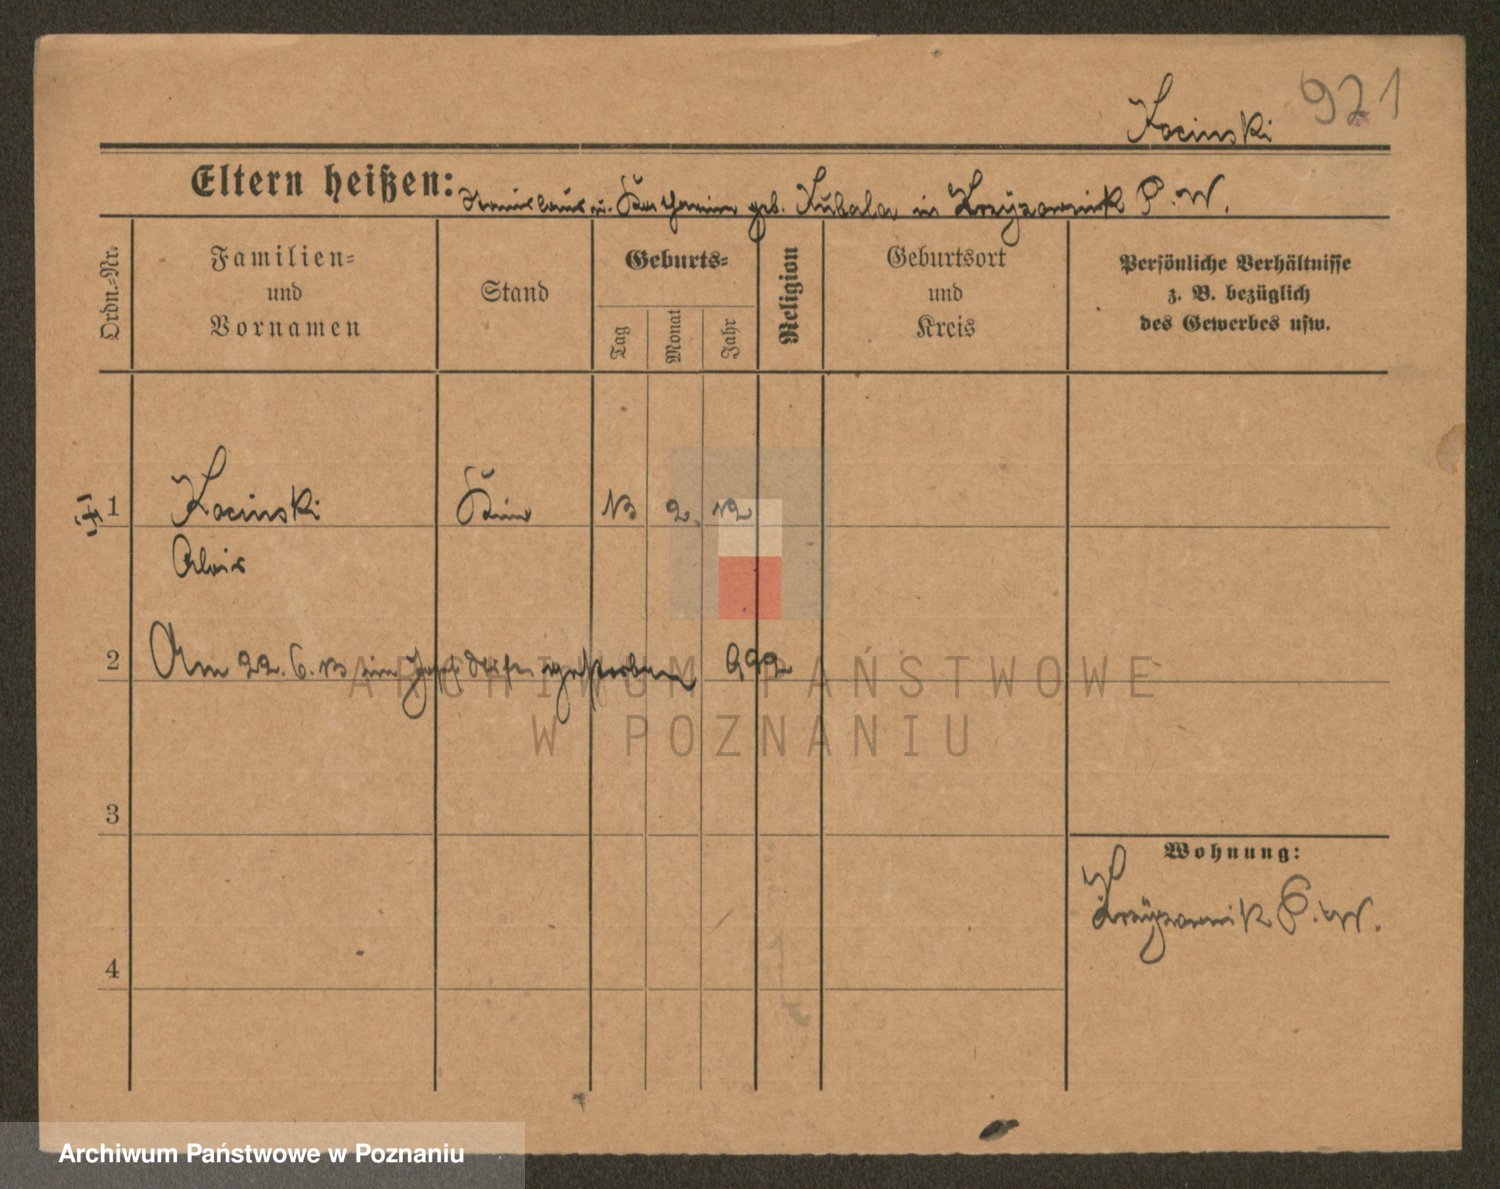 Kocinski 921
Eltern heißen: Stanislaus u. Katharina geb. Kubala in Krzyzownik P. W.
Ordn.-Nr.
Familien=
und
Vornamen
Stand
Geburts=
Tag
Monat
Jahr
Religion
Geburtsort
und
Kreis
Persönliche Verhältnisse
z. B. bezüglich
des Gewerbes usw.
1 Kocinski Kind 13 2. 12
Alois
2 Am 22. 6. 13 im gestorben
ARCHIWUM PAŃSTWOWE
W POZNANIU
3
Wohnung:
Krzyzownik P. W.
4
Archiwum Państwowe w Poznaniu